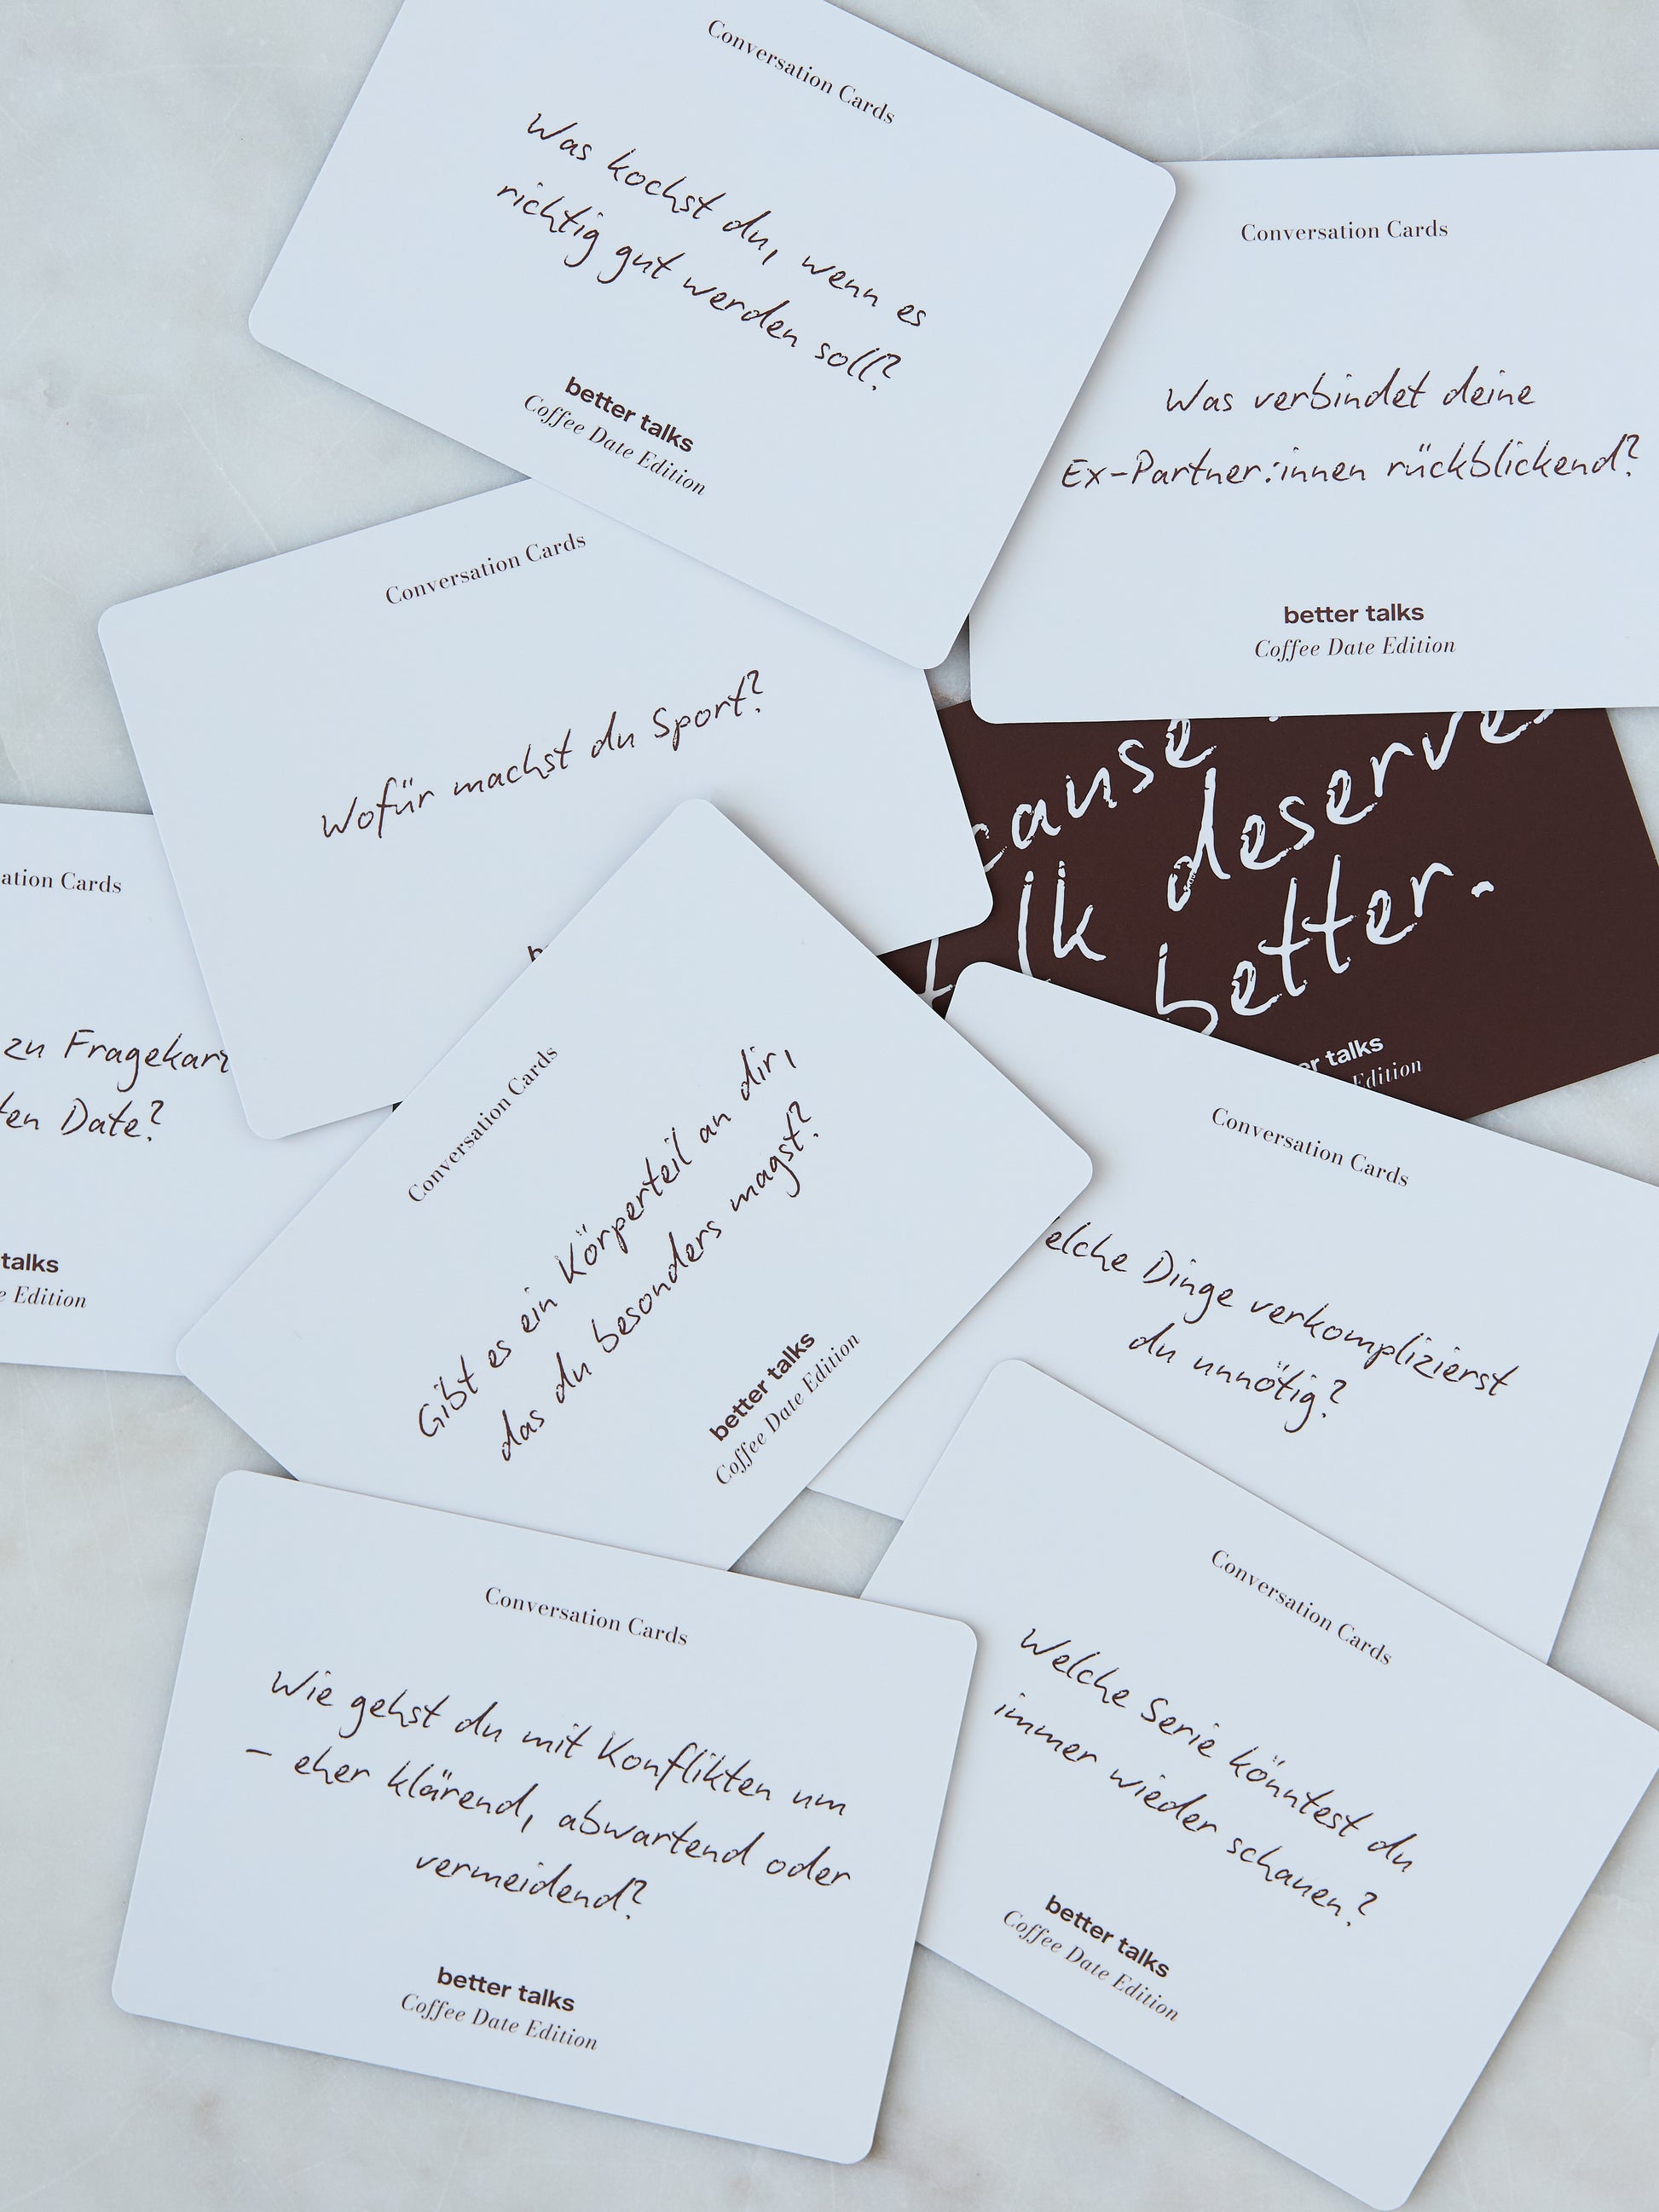 Conversation Cards
Was kochst du, wenn es
richtig gut werden soll?
better talks
Coffee Date Edition
Conversation Cards
Was verbindet deine
Ex-Partner:innen rückblickend?
better talks
Coffee Date Edition
Conversation Cards
Wofür machst du Sport?
deserve
better.
talks
Edition
Cards
zu
Date?
talks
Edition
Conversation Cards
Gibt es ein Körperteil an dir,
das du besonders magst?
better talks
Coffee Date Edition
Conversation Cards
Dinge verkomplizierst
du unnötig?
Conversation Cards
Wie gehst du mit Konflikten um
– eher klärend, abwartend oder
vermeidend?
better talks
Coffee Date Edition
Conversation Cards
Welche Serie könntest du
immer wieder schauen?
better talks
Coffee Date Edition